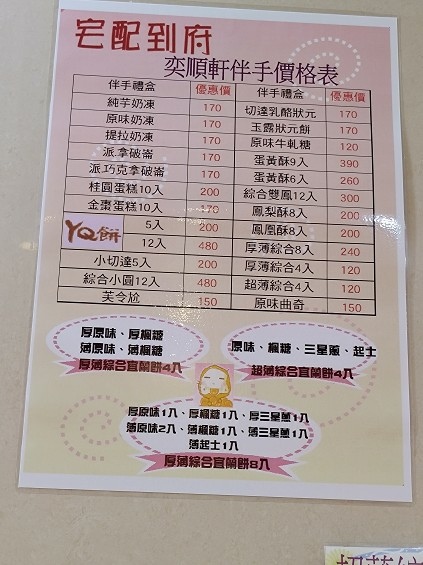 宅配到府
奕順軒伴手價格表
伴手禮盒 優惠價 伴手禮盒 優惠價
純芋奶凍 170 切達乳酪狀元 170
原味奶凍 170 玉露狀元餅 170
提拉奶凍 170 原味牛軋糖 120
派.拿破崙 170 蛋黃酥9入 390
派.巧克拿破崙 170 蛋黃酥6入 260
桂圓蛋糕10入 200 綜合雙鳳12入 300
金棗蛋糕10入 170 鳳梨酥8入 200
YQ餅 5入 200 鳳凰酥8入 200
12入 480 厚薄綜合8入 240
小切達5入 200 厚薄綜合4入 120
綜合小圓12入 480 超薄綜合4入 120
芙令尬 150 原味曲奇 150
厚原味、厚楓糖
薄原味、薄楓糖
厚薄綜合宜蘭餅4入
原味、楓糖、三星蔥、起士
超薄綜合宜蘭餅4入
厚原味1入、厚楓糖1入、厚三星蔥1入
薄原味2入、薄楓糖1入、薄三星蔥1入
薄起士1入
厚薄綜合宜蘭餅8入